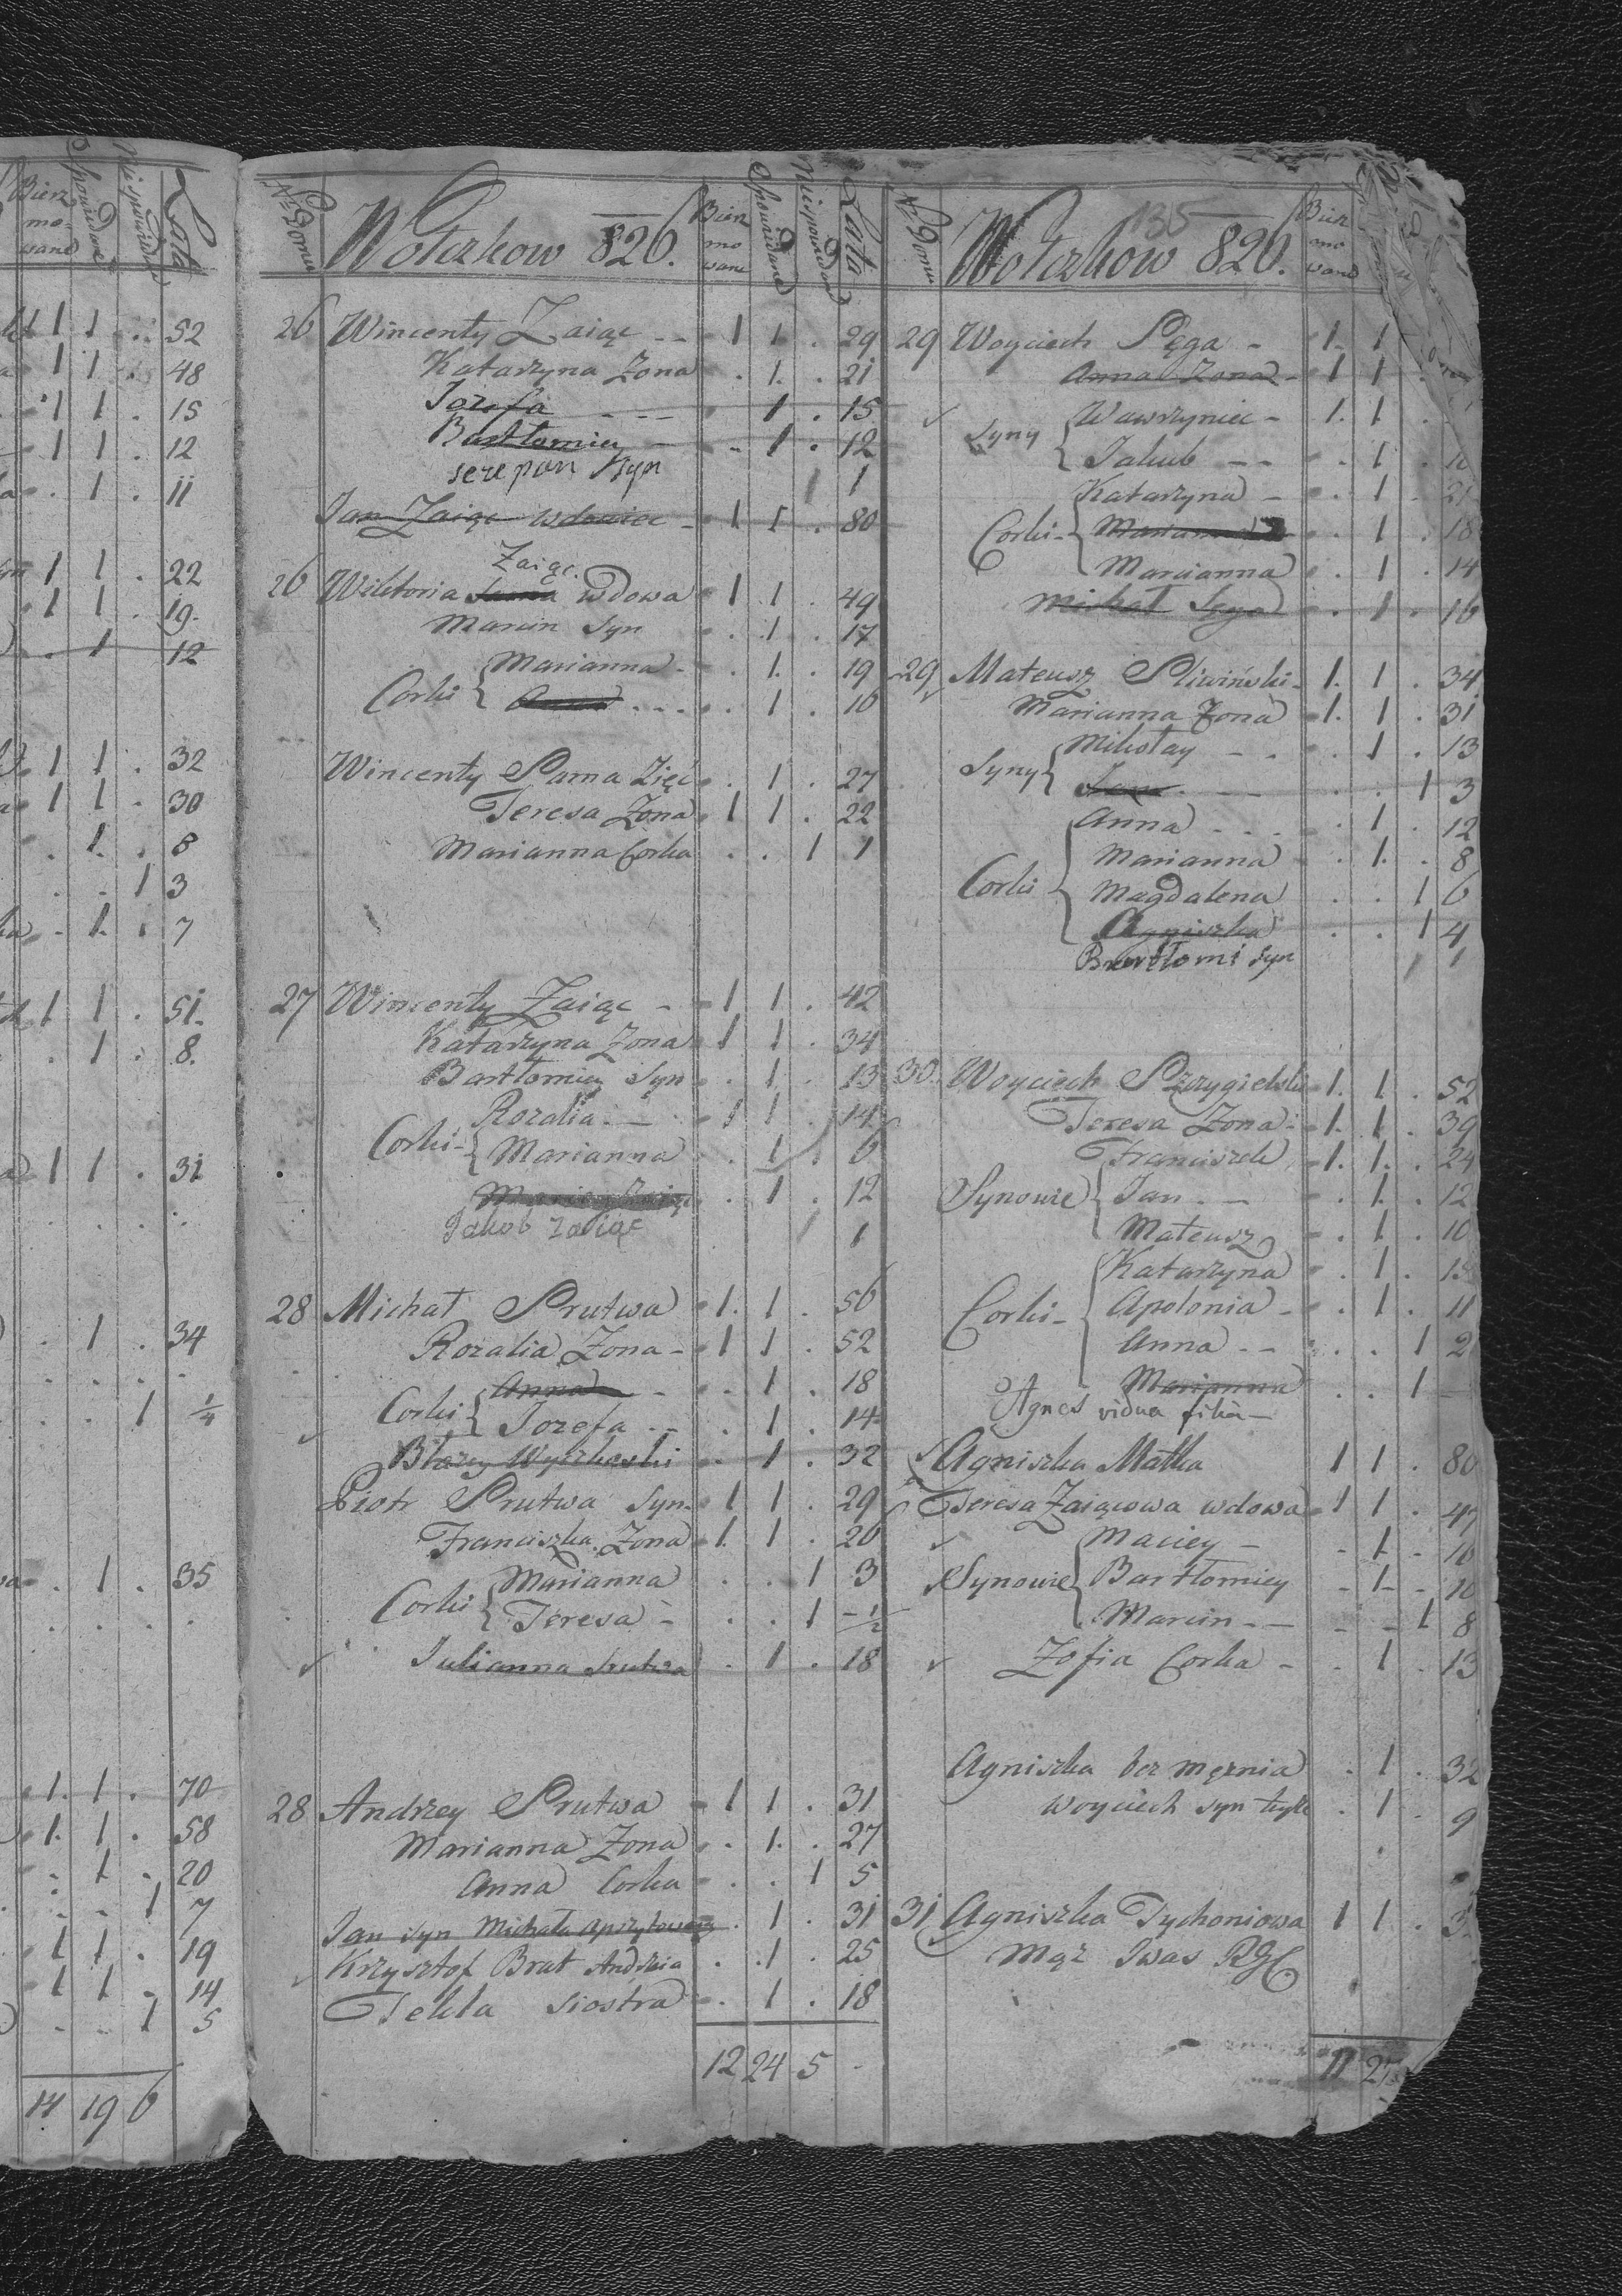 Bierz mo- wane Spowiedane Niespowiedane Lata
1 1 . 52
1 1 . 48
1 1 . 15
1 1 . 12
. 1 . 11
1 1 . 22
1 1 . 19.
. 1 12
1 1 . 32
1 1 . 30
. 1. . 8
. . 1 3
. 1. . 7
1 1 . 51.
. 1 . 8.
1 1 . 31
. 1 . 34
. . 1 1/4
. 1 . 35
1. 1. . 70
1. 1. . 58
. 1 . 20
. . 1 7
1 1 . 19
1 1 . 14
. . 1 5
14 19 6
No Domu Wolczkow 826. Bierz mo wane Spowiedane Niespowiedane Lata
26 Wincenty Zaiąc -- 1 1 . 29
Katarzyna Zona . 1. . 21
Jozefa --- . 1 . 15
Bartłomiey - . 1 . 12
sczepan Syn 1 1
Jan Zaiąc wdowiec - 1 1 . 80
Zaiąc.
26 Wiktoria wdowa 1 1 . 49
Marcin Syn . 1 . 17
Corki { Marianna - . 1. . 19
Anna ... . 1 . 16
Wincenty Sama Zięć . 1 . 27
Teresa Zona 1 1 . 22
Marianna Corka . . 1 1
27 Wincenty Zaiąc - 1 1 . 42
Katarzyna Zona 1 1 . 34
Bartłomiey Syn . 1 . 13
Rozalia - 1 1 . 14
Corki - { Marianna . 1 . 6
. 1 . 12
Jakob zaiąc 1 1
28 Michał Prutwa 1. 1. . 56
Rozalia Zona - 1 1 . 52
Corki { Anna - . 1 . 18
Jozefa -- . 1 . 14
Błazey Wyczkoski . 1 . 32
Piotr Prutwa Syn 1 1 . 29
Franciszka Zona 1. 1 . 26
Corki { Marianna . . 1 3
Teresa - . . 1 - 1/2
Julianna Prutwa . 1 . 18
28 Andrzey Prutwa - 1 1 . 31
Marianna Zona . 1. . 27
Anna Corka . . 1 5
Jan syn Michała . 1 . 31
Krzysztof Brat Andrzeia . 1 . 25
Tekla siostra . 1 . 18
12 24 5
No Domu 135 Wolczkow 826. Bierz mo wane
29 Woyciech Sęga - 1. 1
Anna Zona - 1 1
Syny { Wawrzyniec - 1. 1
Jakub -- . 1
Katarzyna - . 1 . 21
Corki - { Marianna . 1 . 18
Marcianna . 1 . 14
Michał Sęga . 1 . 16
29 Mateusz Sliwiński - 1. 1 . 34
Marianna Zona 1. 1 . 31
Syny { Mikołay -- . 1 . 13
. . 1 3
Anna ... . 1 . 12
Corki { Marianna . 1. . 8
Magdalena . . 1 6
Agniszka . . 1 4
Bartłomi syn 1 1
30. Woyciech Przygielski 1. 1. . 52
Teresa Zona 1. 1 . 39
Franciszek 1. 1. . 24
Synowie { Jan -- . 1. . 12
Mateusz . 1 . 10
Katarzyna . 1 .
Corki - { Apolonia - . 1 . 11
Anna -- . . 1 2
Marianna . . 1
Agnes vidua filia -
Agniszka Matka 1 1 . 80
Teresa Zaiącowa wdowa 1 1 . 47
Maciey - . 1 . 16
Synowie { Bartłomiey - 1 - 10
Marcin -- - - 1 8
Zofia Corka - . 1 . 13
Agniszka bez męznia . 1 . 32
Woyciech syn teyze . 1 . 9
31 Agniszka Tychoniowa 1 1 .
Mąz Iwas RGC.
11